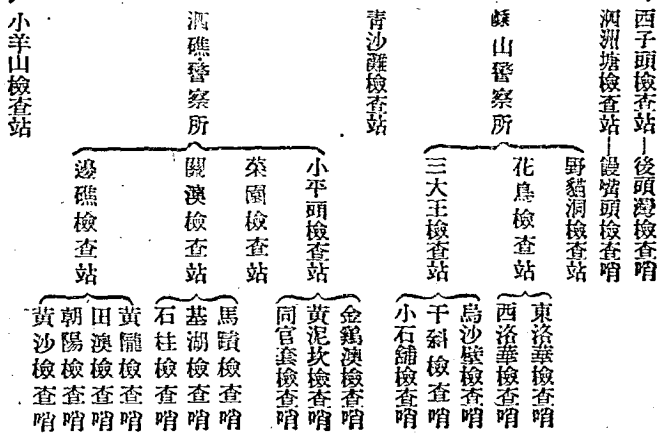 西子頭檢查站—後頭灣檢查哨
泗洲塘檢查站—饅頭檢查哨
嵊山警察所
野貓洞檢查站
花鳥檢查站
東洛華檢查哨
西洛華檢查哨
三大王檢查站
烏沙壁檢查哨
干斜檢查哨
小石舖檢查哨
青沙灘檢查站
泗礁警察所
小平頭檢查站
金鷄澳檢查哨
黃泥坎檢查哨
同官套檢查哨
菜園檢查站
關澳檢查站
馬蹟檢查哨
基湖檢查哨
石柱檢查哨
邊礁檢查站
黃隴檢查哨
田澳檢查哨
朝陽檢查哨
黃沙檢查哨
小羊山檢查站